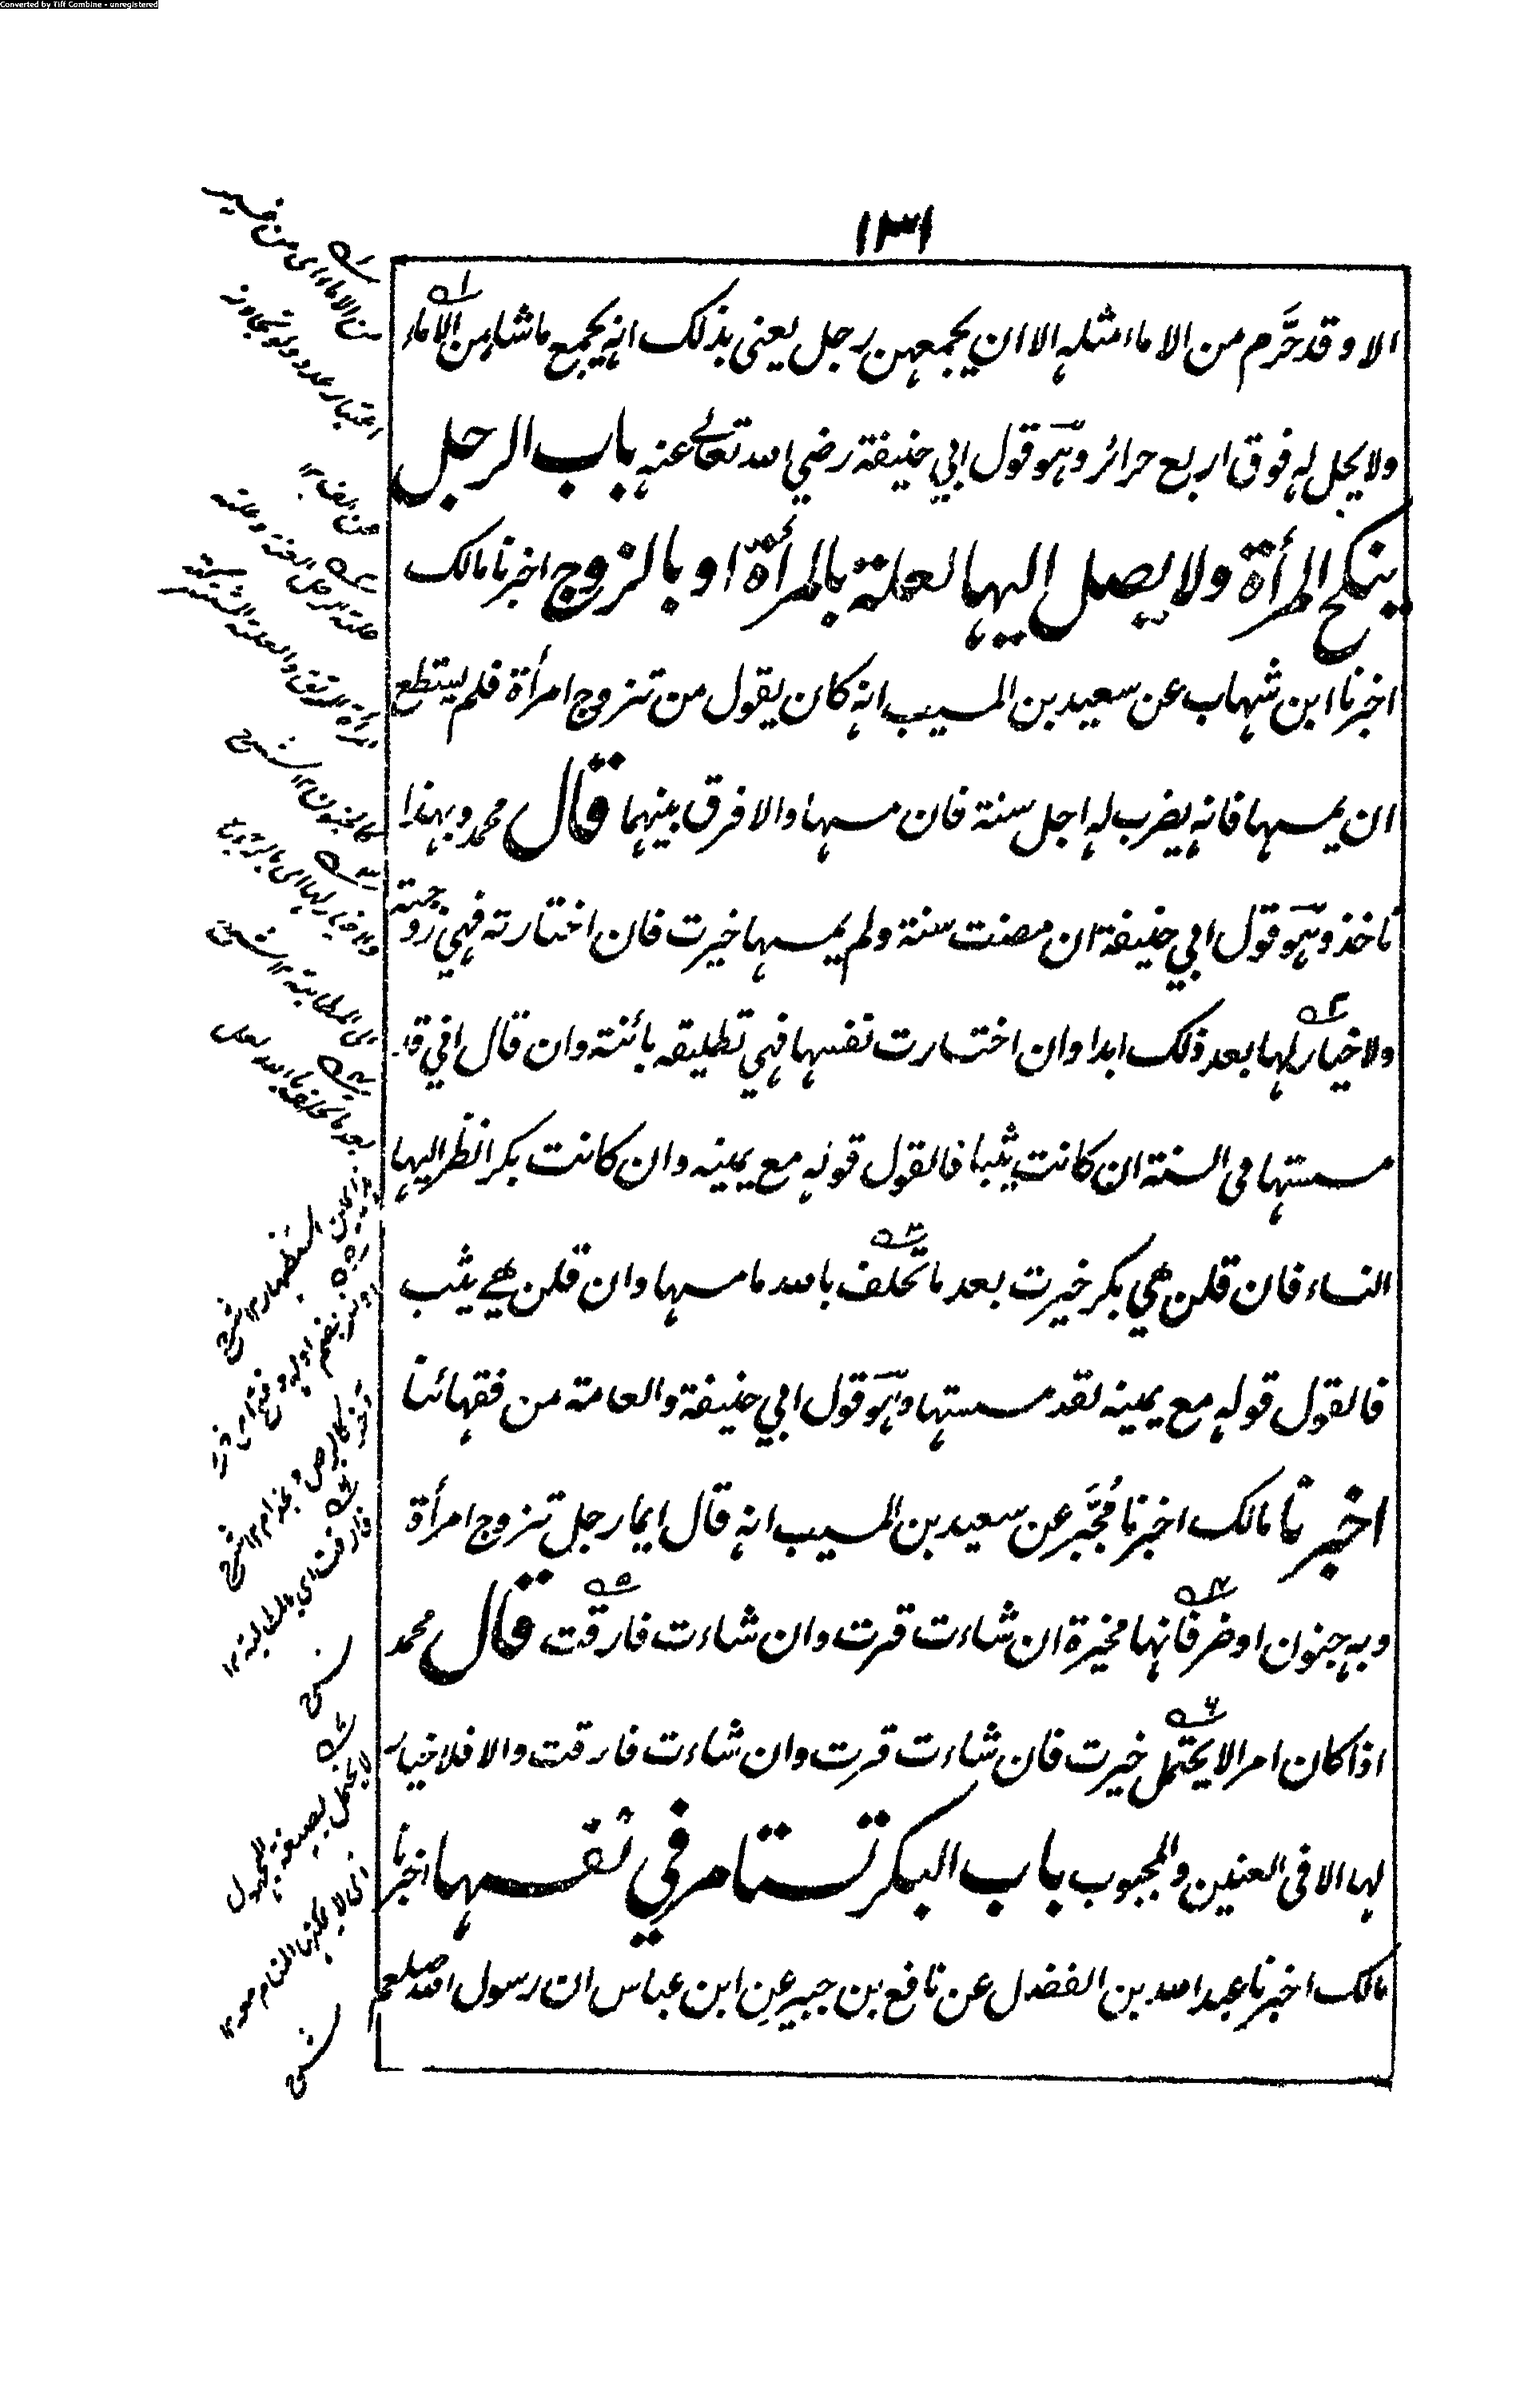 Converted by Tiff Combine - unregistered
١٣١
الا وقد حَّرم من الاماء مثله الا ان يجمعهن رجل يعني بذلك انه يجمع ما شاء من الاماء
ولا يحل له فوق اربع حرائر وهو قول ابي حنيفة رضي الله تعالى عنه باب الرجل
ينكح المرأة ولا يصل اليها لعلة بالمرأة او بالزوج اخبرنا مالك
اخبرنا ابن شهاب عن سعيد بن المسيب انه كان يقول من تزوج امرأة فلم يستطع
ان يمسها فانه يضرب له اجل سنة فان مسها والا فرق بينهما قال محمد وبهذا
ناخذ وهو قول ابي حنيفة ان مضت سنة ولم يمسها خيرت فان اختارته فهي زوجته
ولا خيار لها بعد ذلك ابدا وان اختارت نفسها فهي تطليقه بائنة وان قال اني قد
مسستها في السنة ان كانت ثيبا فالقول قوله مع يمينه وان كانت بكرا نظر اليها
النساء فان قلن هي بكر خيرت بعد ما تحلف بالله ما مسها وان قلن هي ثيب
فالقول قوله مع يمينه لقد مسستها وهو قول ابي حنيفة والعامة من فقهائنا
اخبرنا مالك اخبرنا مُجَّبر عن سعيد بن المسيب انه قال ايما رجل تزوج امرأة
وبه جنون او ضر فانها مخيرة ان شاءت قرت وان شاءت فارقت قال محمد
اذا كان امر الا يحتمل خيرت فان شاءت قرت وان شاءت فارقت والا فلا خيار
لها الا في العنين والمجبوب باب البكر تستامر في نفسها اخبرنا
مالك اخبرنا عبد الله بن الفضل عن نافع بن جبير عن ابن عباس ان رسول الله صلعم
من الاماء اي من غير
اعتبار عدد ولو تجاوز
عن الف ١٢
كالمجنون ١٢ شرح
ولا خيار لها اي بالزوجية
بعد ما تحلف بالله
فارقت اي بالمطالبة ١٢
شرح
لا يحتمل بصيغة المجهول
شرح